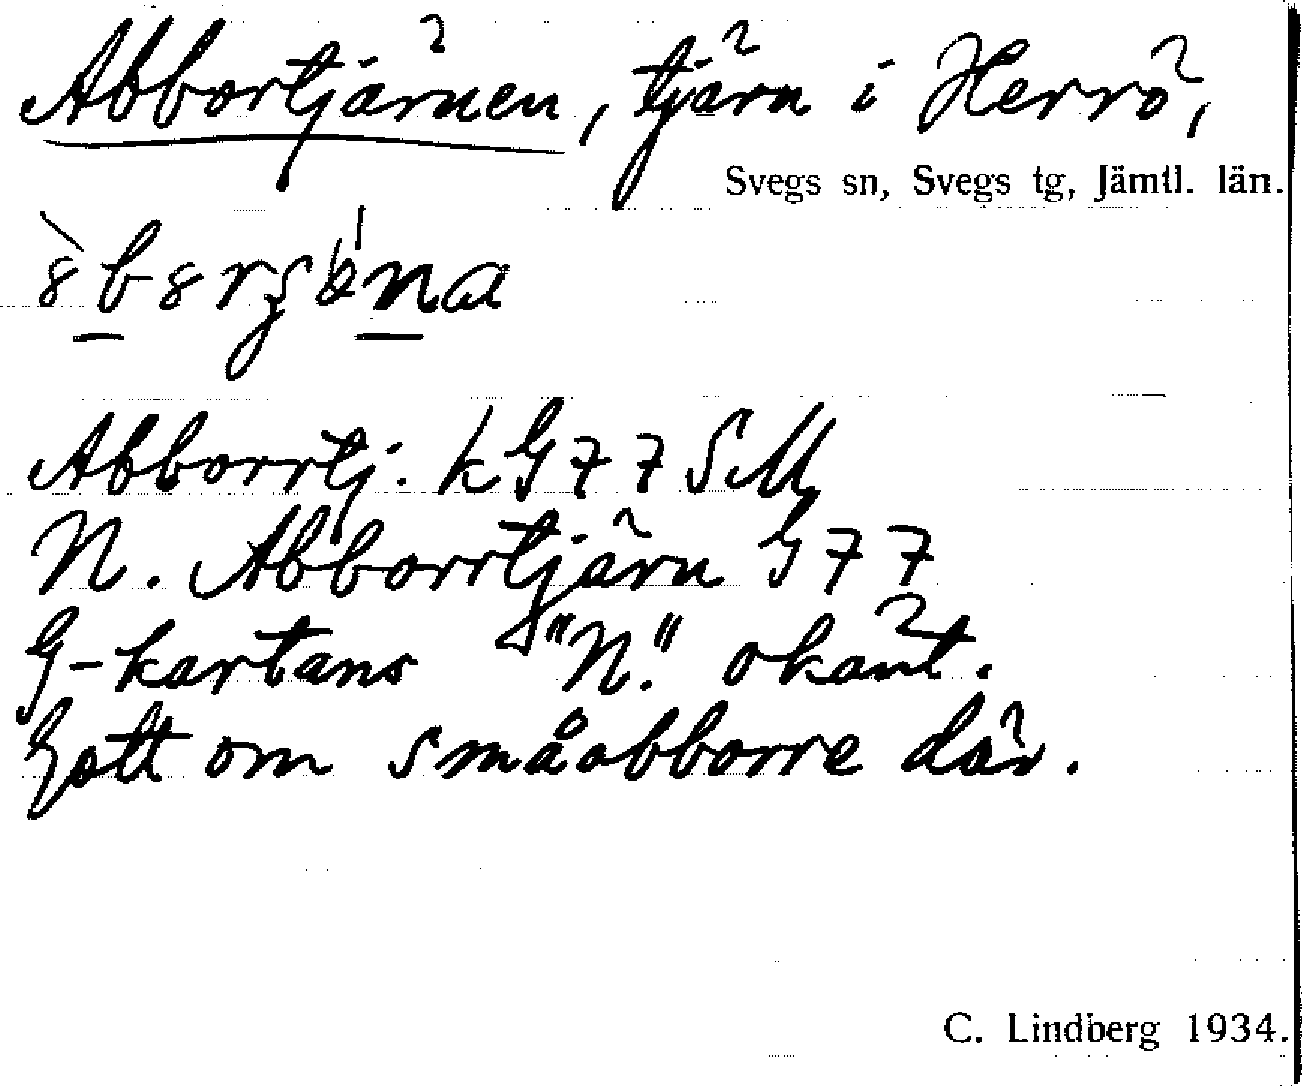 Abbortjärnen, tjärn i Herrö,
Svegs sn, Svegs tg, Jämtl. län.
Abborrtj. k G 7 7 SM,
N. Abborrtjärn G 7 7
G-kartans "N." okänt.
Gott om småabborre där.
C. Lindberg 1934.